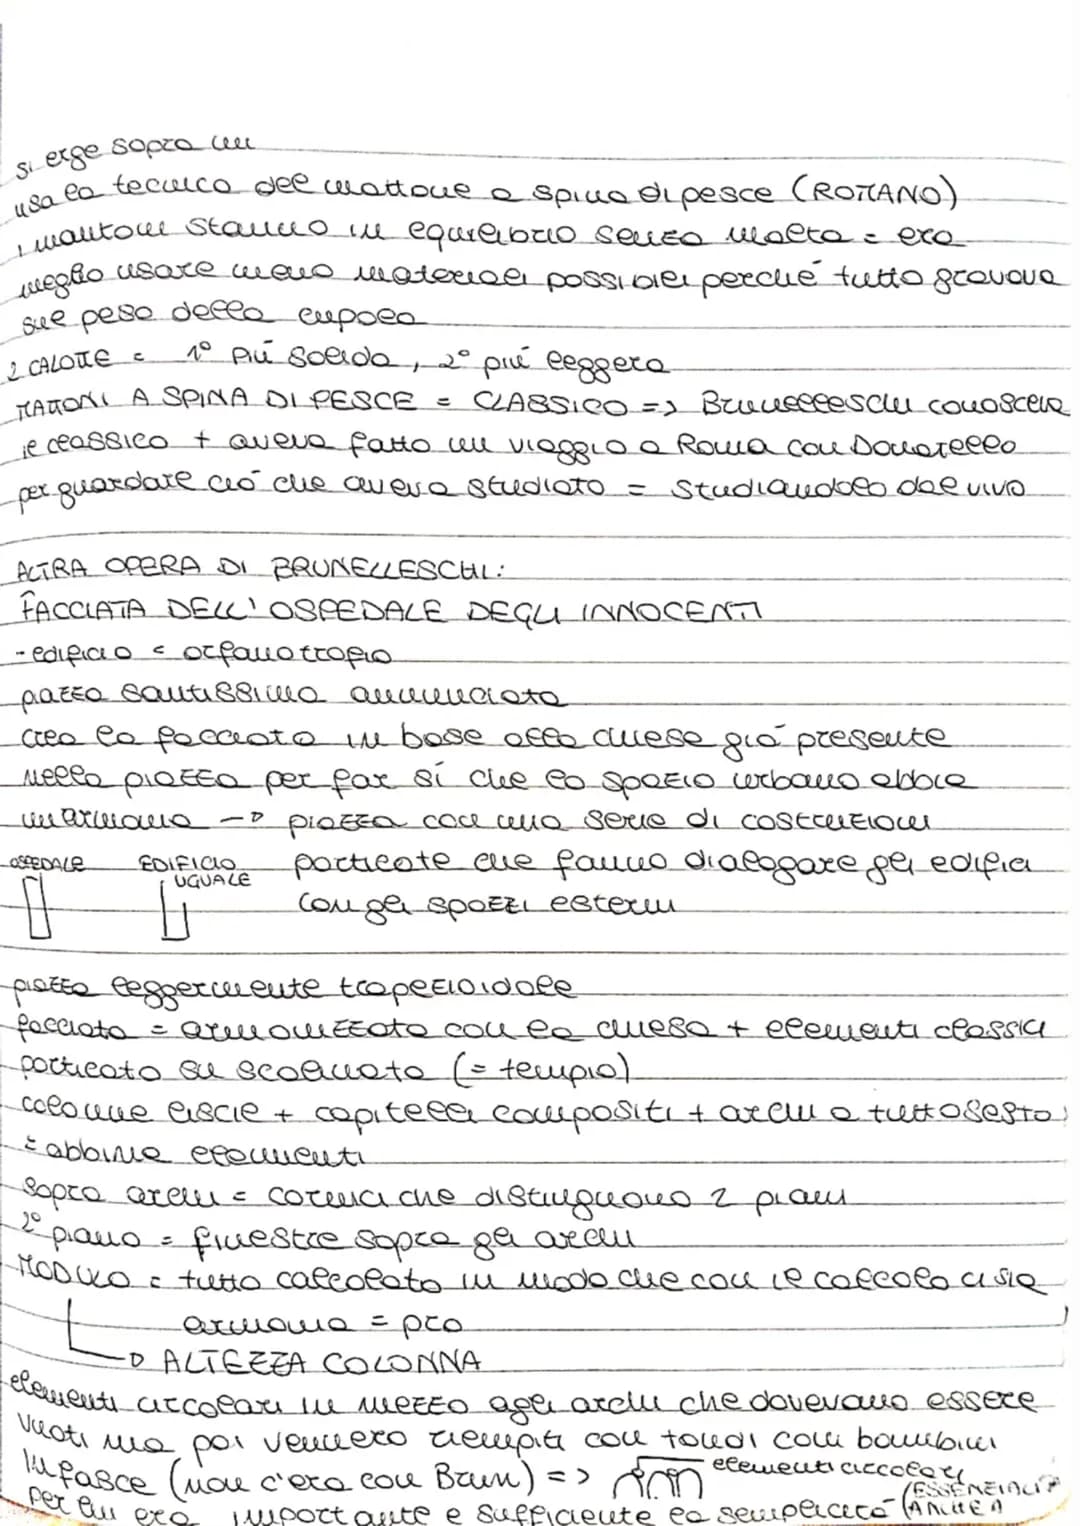 si erge sopra un
usa la tecnica del mattone a spina di pesce (ROMANO)
i mattoni stanno in equilibrio senza malta = era
meglio usare meno materiali possibili perché tutto gravava
sul peso della cupola
2 CALOTTE = 1° più solida, 2° più leggera
MATTONI A SPINA DI PESCE = CLASSICO => Brunelleschi conosceva
il classico + aveva fatto un viaggio a Roma con Donatello
per guardare ciò che aveva studiato = studiandolo dal vivo
ALTRA OPERA DI BRUNELLESCHI:
FACCIATA DELL'OSPEDALE DEGLI INNOCENTI
- edificio = orfanotrofio
piazza santissima annunciata
crea la facciata in base alla chiesa già presente
nella piazza per far sì che lo spazio urbano abbia
un'armonia -> piazza con una serie di costruzioni
OSPEDALE EDIFICIO UGUALE porticate che fanno dialogare gli edifici
con gli spazzi esterni
piazza leggermente trapezioidale
facciata = armonizzata con la chiesa + elementi classici
porticato su scalinata (= tempio)
colonne liscie + capitelli compositi + archi a tutto sesto
= abbina elementi
sopra archi = cornici che distinguono 2 piani
2° piano = finestre sopra gli archi
MODULO = tutto calcolato in modo che con il calcolo ci sia
armonia = pro
-> ALTEZZA COLONNA
elementi circolari in mezzo agli archi che dovevano essere
vuoti ma poi vennero riempiti con tondi con bambini
in fasce (non c'era con Brun) => elementi circolari
per lui era importante e sufficiente la semplicità (ESSENZIALI
ANCHE A